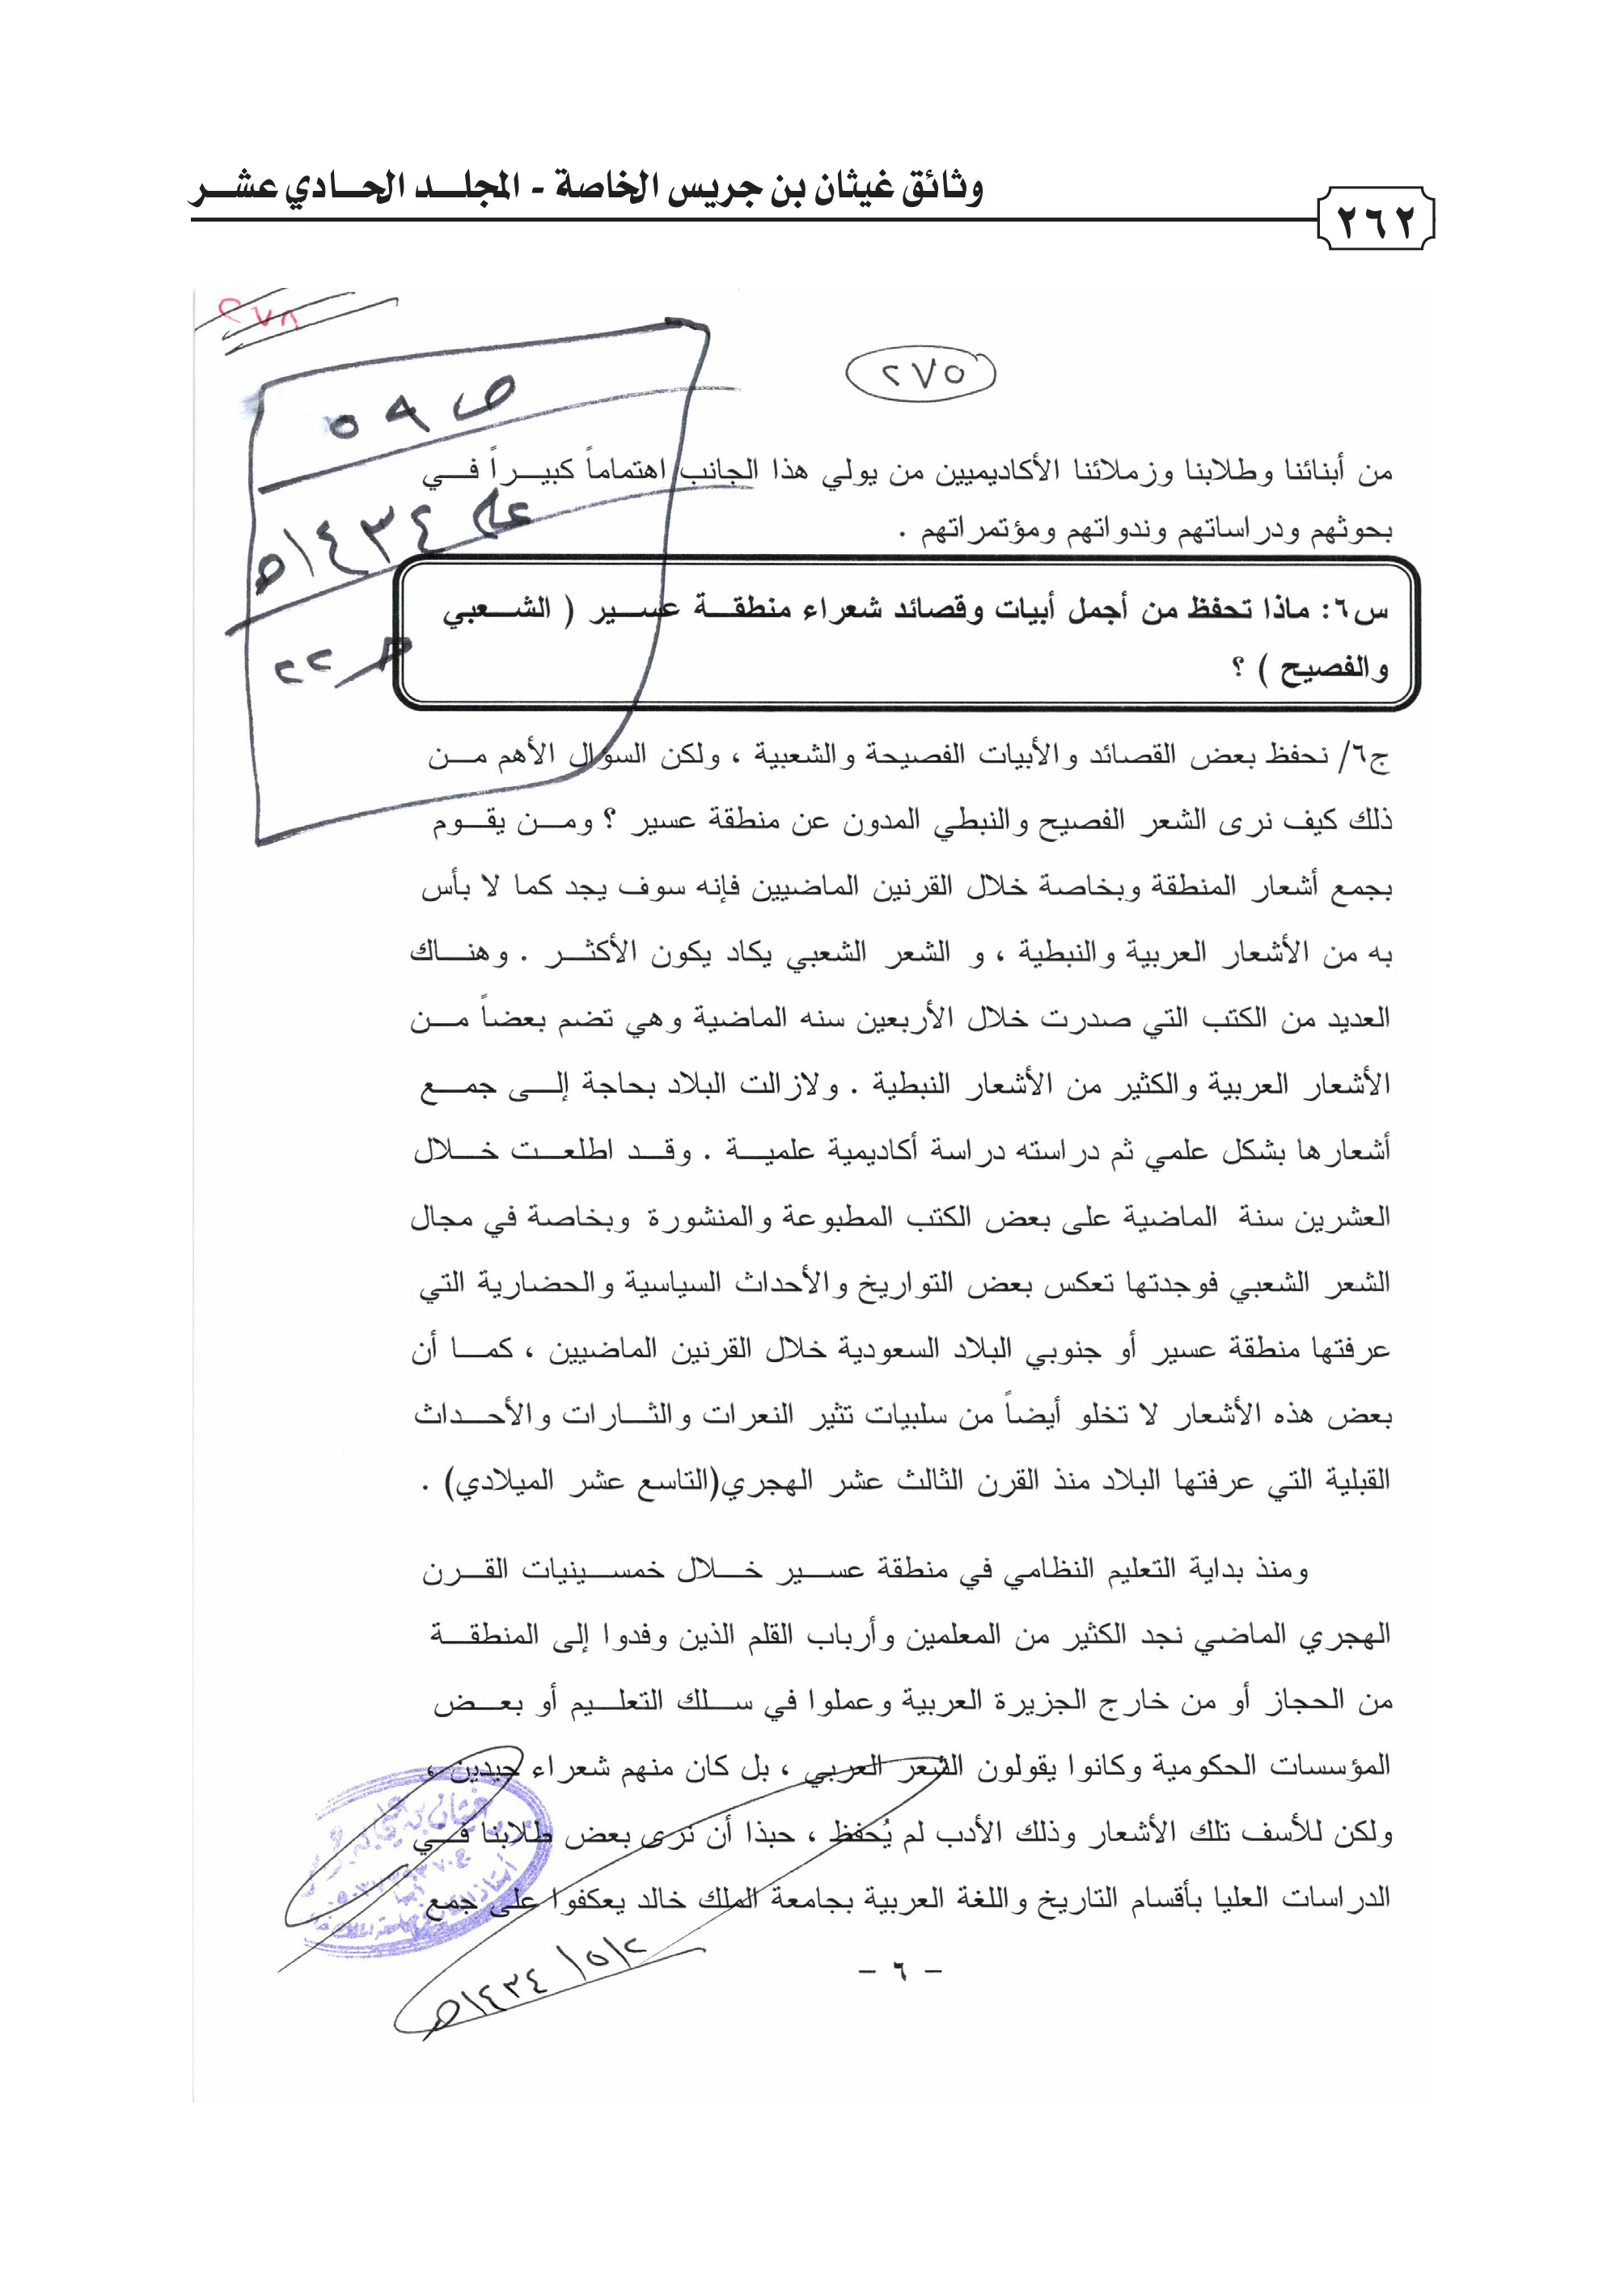 وثائق غيثان بن جريس الخاصة - المجلـــد الحـــادي عشـــر
٢٦٢
٢٧٨
٢٧٥
ص ٥٩
عام ١٤٣٤هـ
حـ ٢٢
من أبنائنا وطلابنا وزملائنا الأكاديميين من يولي هذا الجانب اهتماماً كبيـــراً فـــي
بحوثهم ودراساتهم وندواتهم ومؤتمراتهم .
س٦: ماذا تحفظ من أجمل أبيات وقصائد شعراء منطقـــة عســـير ( الشـــعبي
والفصيح ) ؟
ج٦/ نحفظ بعض القصائد والأبيات الفصيحة والشعبية ، ولكن السؤال الأهم مـــن
ذلك كيف نرى الشعر الفصيح والنبطي المدون عن منطقة عسير ؟ ومـــن يقـــوم
بجمع أشعار المنطقة وبخاصة خلال القرنين الماضيين فإنه سوف يجد كما لا بأس
به من الأشعار العربية والنبطية ، و الشعر الشعبي يكاد يكون الأكثـــر . وهنـــاك
العديد من الكتب التي صدرت خلال الأربعين سنه الماضية وهي تضم بعضاً مـــن
الأشعار العربية والكثير من الأشعار النبطية . ولازالت البلاد بحاجة إلـــى جمـــع
أشعارها بشكل علمي ثم دراسته دراسة أكاديمية علميـــة . وقـــد اطلعـــت خـــلال
العشرين سنة الماضية على بعض الكتب المطبوعة والمنشورة وبخاصة في مجال
الشعر الشعبي فوجدتها تعكس بعض التواريخ والأحداث السياسية والحضارية التي
عرفتها منطقة عسير أو جنوبي البلاد السعودية خلال القرنين الماضيين ، كمـــا أن
بعض هذه الأشعار لا تخلو أيضاً من سلبيات تثير النعرات والثـــارات والأحـــداث
القبلية التي عرفتها البلاد منذ القرن الثالث عشر الهجري(التاسع عشر الميلادي) .
ومنذ بداية التعليم النظامي في منطقة عســـير خـــلال خمســـينيات القـــرن
الهجري الماضي نجد الكثير من المعلمين وأرباب القلم الذين وفدوا إلى المنطقـــة
من الحجاز أو من خارج الجزيرة العربية وعملوا في ســـلك التعلـــيم أو بعـــض
المؤسسات الحكومية وكانوا يقولون الشعر العربي ، بل كان منهم شعراء جيدين ،
ولكن للأسف تلك الأشعار وذلك الأدب لم يُحفظ ، حبذا أن نرى بعض طلابنا فـــي
الدراسات العليا بأقسام التاريخ واللغة العربية بجامعة الملك خالد يعكفوا على جمع
٢/٥/١٤٣٤هـ
- ٦ -